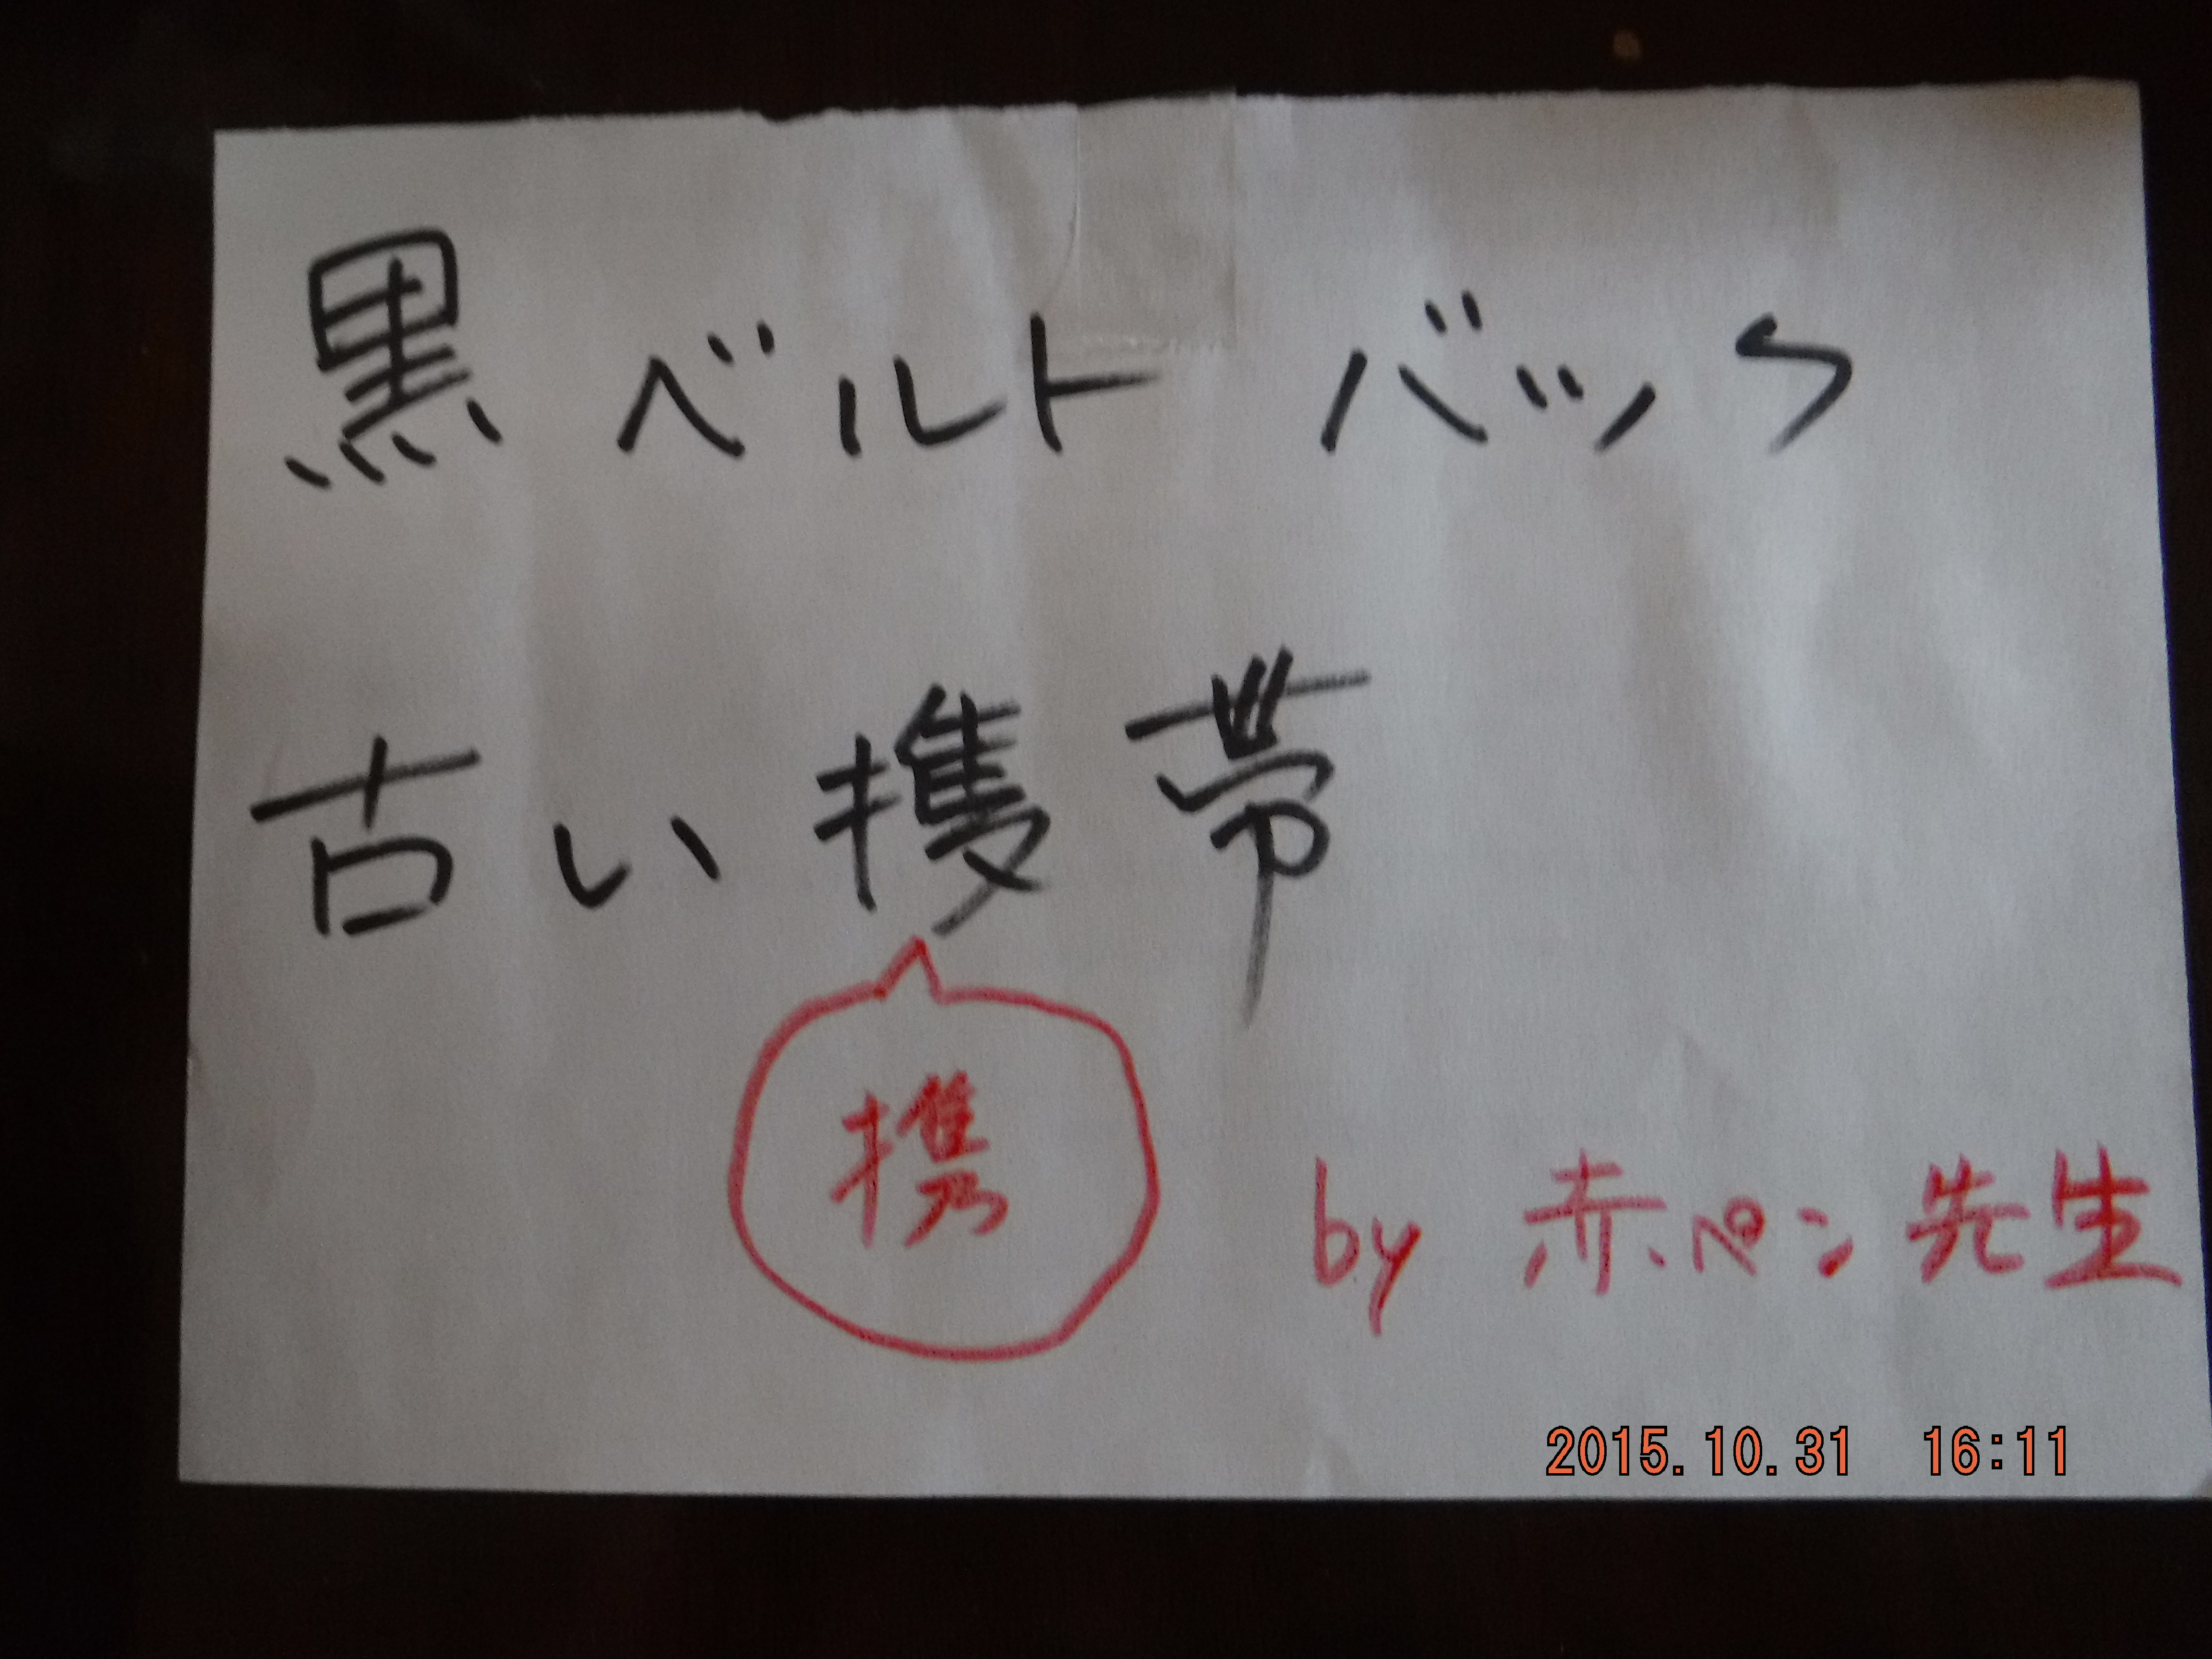 黒ベルト バック
古い擭帯
携
by 赤ペン先生
2015.10.31 16:11